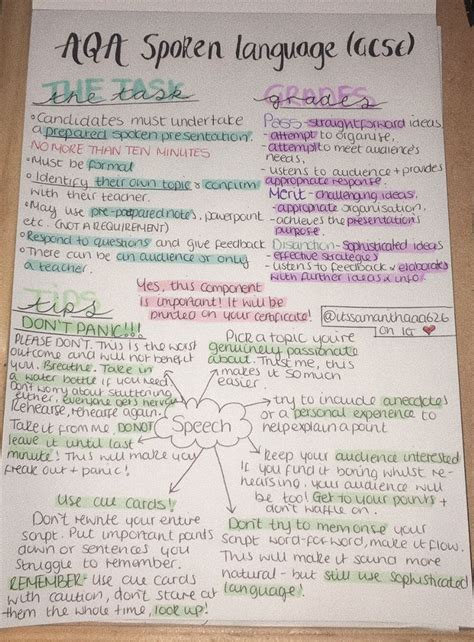 AQA Spoken language (GCSE)
THE TASK
the task
• Candidates must undertake
a prepared spoken presentation.
NO MORE THAN TEN MINUTES
• Must be formal
• Identify their own topic & confirm
with their teacher.
• May use pre-prepared notes, powerpoint
etc. (NOT A REQUIREMENT)
• Respond to questions and give feedback
• There can be an audience or only
a teacher.
GRADES
grades
Pass - straightforward ideas
- attempt to organise,
- attempt to meet audience's
needs,
- listens to audience + provides
appropriate response.
Merit - challenging ideas,
- appropriate organisation,
- achieves the presentations
purpose.
Distinction - Sophisticated ideas
- effective strategies
- listens to feedback & elaborates
with further ideas & info.
Yes, this component
is important! It will be
printed on your certificate!
@itssamanthaaa626
on IG
TIPS
tips
DON'T PANIC!!!
PLEASE DON'T. This is the worst
outcome and will not benefit
you. Breathe. Take in
a water bottle if you need.
Don't worry about stuttering
either, everyone gets nervous.
Rehearse, rehearse again.
Take it from me, DO NOT
leave it until last
minute! This will make you
freak out + panic!
Speech
Pick a topic you're
genuinely passionate
about. Trust me, this
makes it so much
easier.
try to include anecdotes
or a personal experience to
help explain a point
Keep your audience interested
If you find it boring whilst re-
hearsing, your audience will
be too! Get to your points +
don't waffle on.
Use cue cards!
Don't rewrite your entire
script. Put important points
down or sentences you
struggle to remember.
REMEMBER: Use cue cards
with caution, don't stare at
them the whole time, look up!
Don't try to memorise your
script word-for-word, make it flow.
This will make it sound more
natural - but still use sophisticated
language!